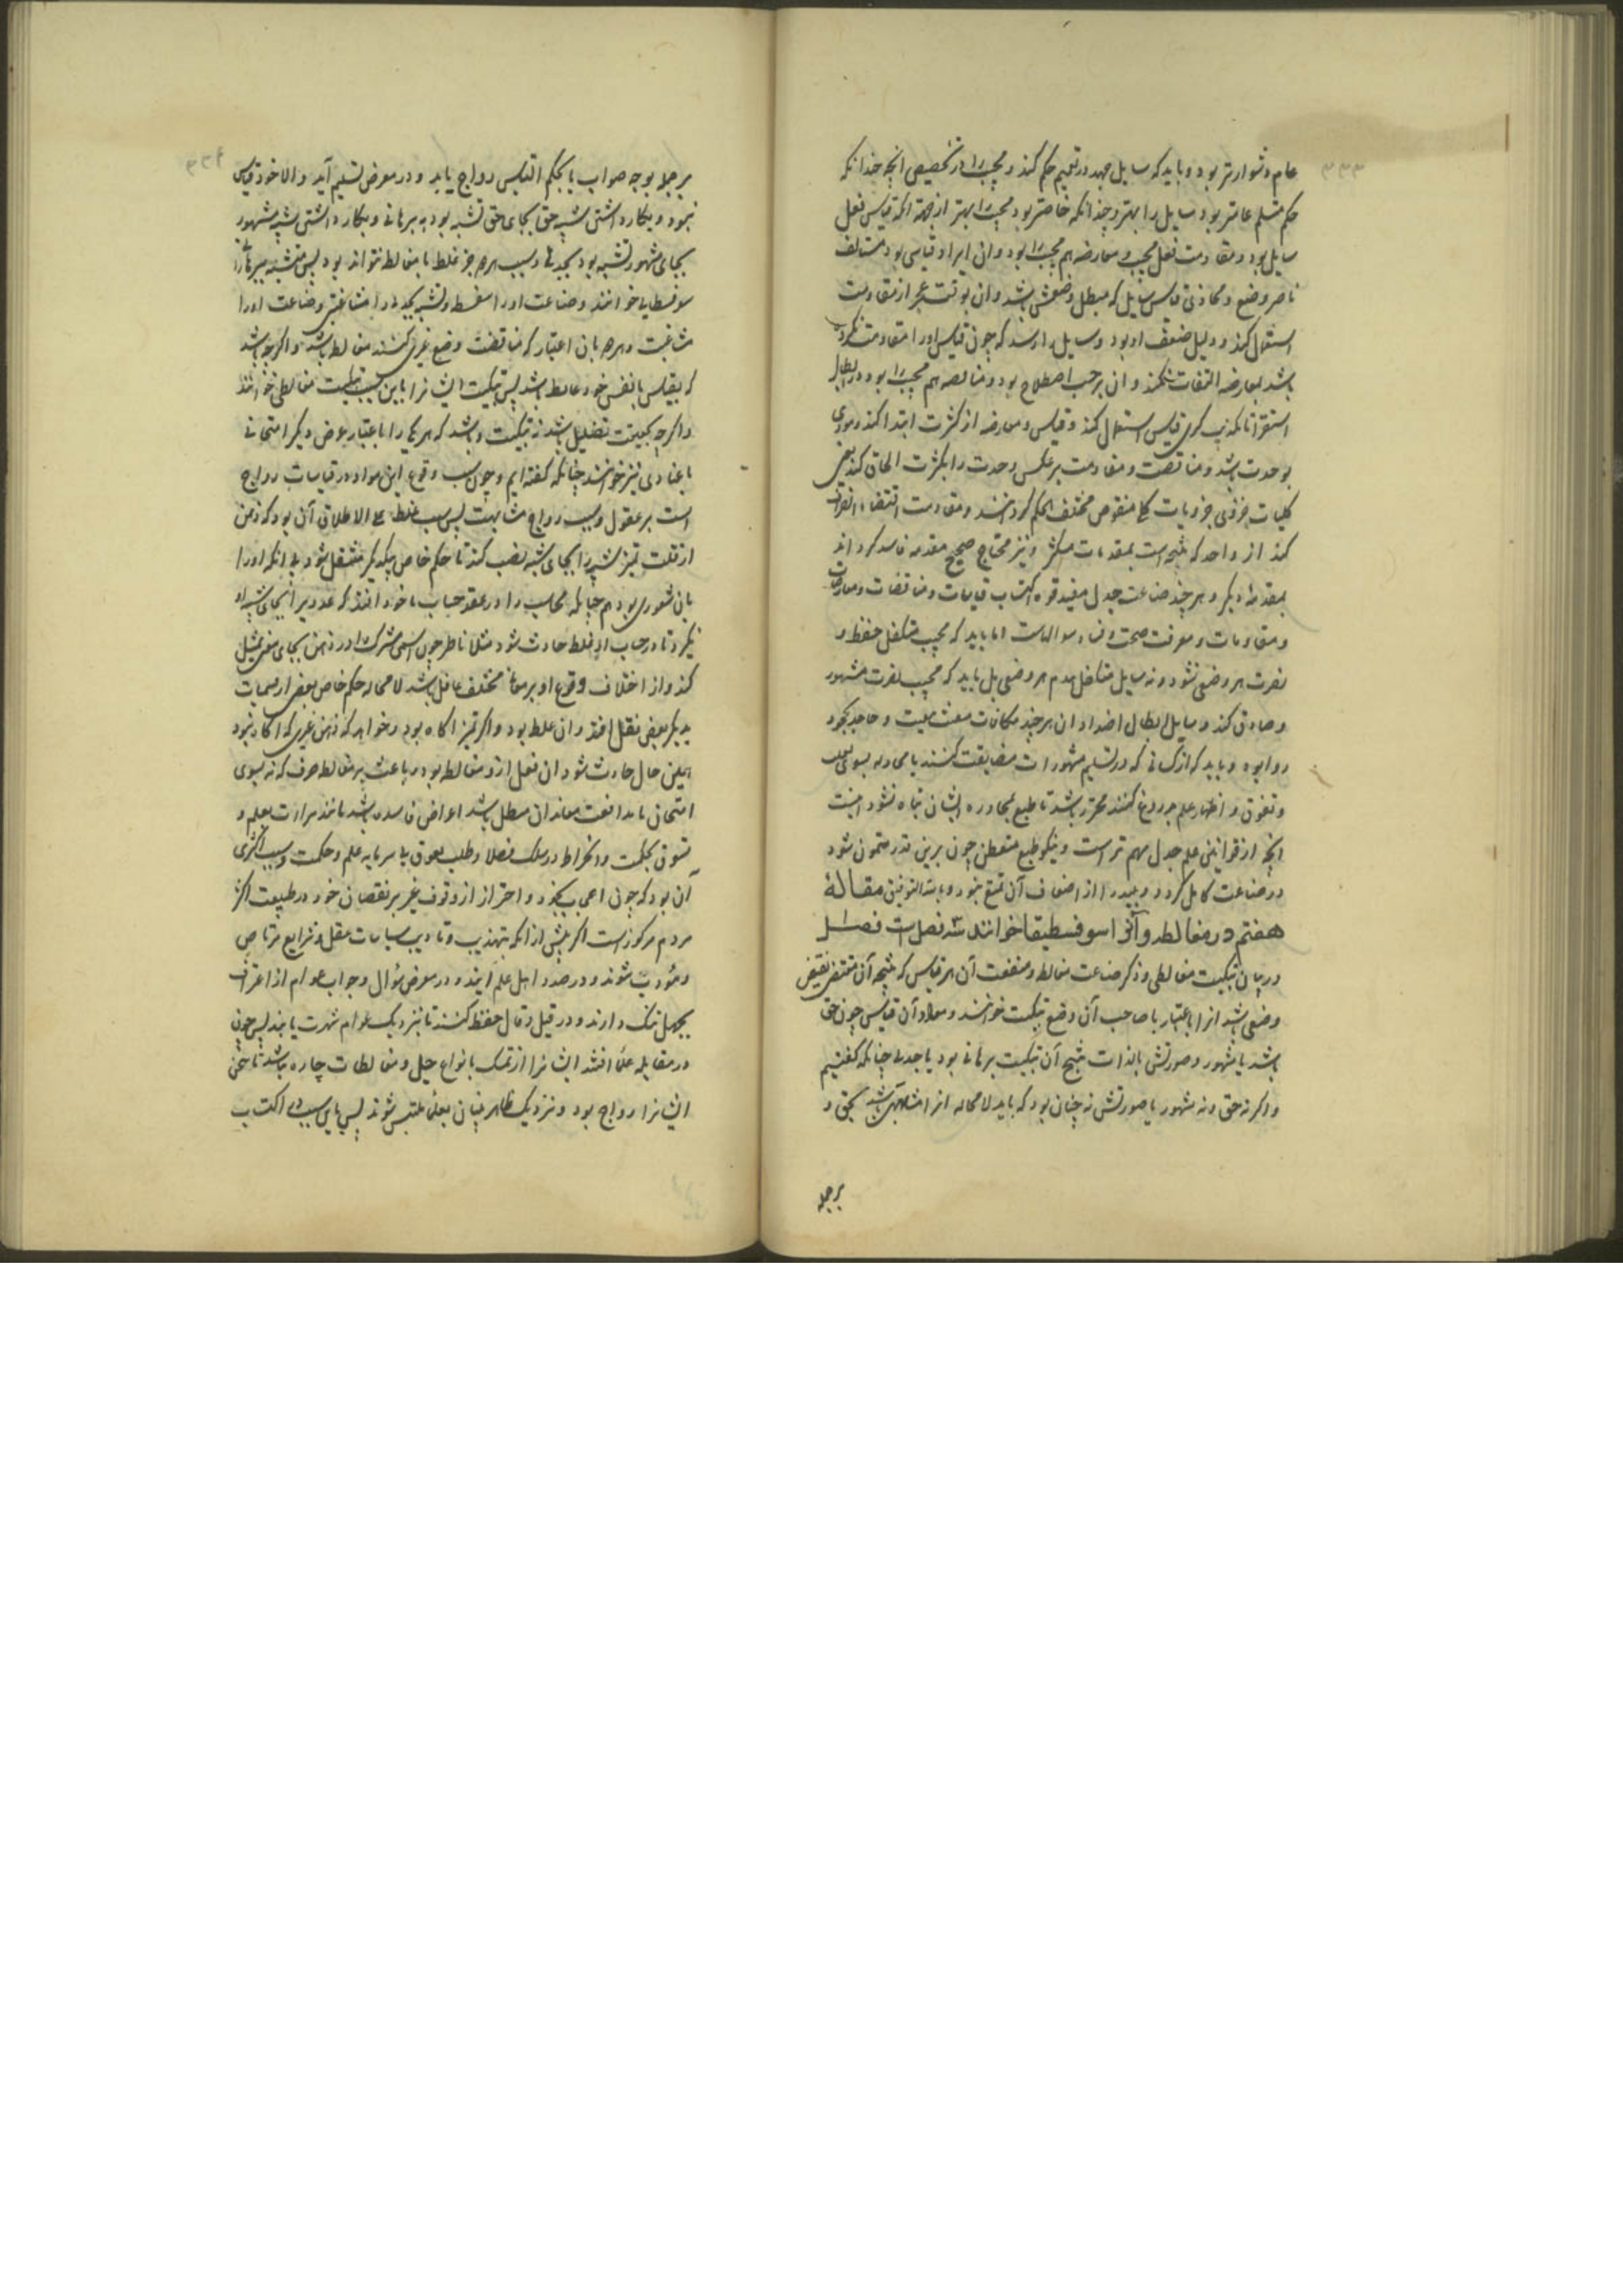 عام دشوارتر بود و باید که سایل جهد در تعمیم حکم کند و مجیب را در تخصیص انچه چندانکه
حکم متسلم عامتر بود سایل را بهتر و چندانکه خاصتر بود مجیب را بهتر از جهة انکه قیاس فعل
سایل بود و مقاومت فعل مجیب و معارضه هم مجیب را بود و ان ایراد قیاسی بود
ناصر وضع و محاذی قیاس سایل که مبطل وضعش باشد و ان بوقت عجز از مقاومت
استعمال کند و دلیل ضعف او بود و سایل را رسد که چون قیاس او را مقاومت نکرده
باشد بمعارضه التفات نکند و ان برحسب اصطلاح بود و مناقضه هم مجیب را بود در ابطال
استقرا تا مکذب کبری قیاس استعمال کند و قیاس و معارضه از کثرت ابتدا کند و مودی
بوحدت باشد و مناقضت و مقاومت برعکس وحدت را بکثرت الحاق کند یعنی
کلیات جزوی جزویات منقوض مختلف الحکم گردانند و مقاومت اقتضاء
کند از واحد که نتیجه است بمقدمات متکثر و نیز محتاج صحیح مقدمه فاسد گرداند
بمقدمه دیگر و هر چند صناعت جدل مفید قوه اکتساب قیاسات و مناقضات و معارضات
و مقاومات و معرفت صحت و فساد سوالهاست اما باید که مجیب متکفل حفظ و
نصرت هر وضعی نشود و نه سایل متکفل هدم هر وضعی بل باید که مجیب نصرت مشهور
و صادق کند و سایل ابطال اضداد ان هر چند
روا بود و باید که از کسانی که در تسلیم مشهورات مضایقت کنند یا
و تفوق و اظهار علم بدروغ کنند محترز باشد تا طبع بمحاوره ایشان تباه نشود اینست
انچه از قوانین علم جدل مهم تر است و نیکو طبع متفطن چون برین قدر متمون شود
در صناعت کامل گردد و باضعاف آن تمتع بود و بالله التوفیق مقالۀ
هفتم در مغالطه و آنرا سوفسطیقا خوانند سه فصل است فصل
در بیان تبکیت مغالطی و ذکر صناعت مغالطه و منفعت آن هر قیاس که نتیجه آن مقتضی نقیض
وضعی باشد انرا باعتبار با صاحب آن وضع تبکیت خوانند و مواد آن قیاس چون حق
باشد یا مشهور و صورتش بالذات منتج آن تبکیت برهانی بود یا جدلی چنانکه گفتیم
و اگر نه حق و نه مشهور یا صورتش نه چنان بود که باید لامحاله انرا مشابهتی باشد بحق و
برجمله
برجمله بوجه صواب یا بحکم التباس رواج یابد و در معرض تسلیم آید و الا خود قیاس
نبود و بکار داشتن شبیه حق بجای حق تشبه بود ببرهانی و بکار داشتن شبیه مشهور
بجای مشهور تشبه بود بجدلی و سبب هر دو جز غلط یا مغالطه نتواند بود پس متشبه ببرهانی را
سوفسطایی خوانند و صناعت او را سفسطه و متشبه بجدلی را مشاغبی و صناعت او را
مشاغبت و هر دو بان اعتبار که مناقضت وضع غیری کنند مغالط باشند و اگر چه باشد
که بقیاس با نفس خود غالط باشند پس تبکیت ایشانرا باین سبب تبکیت مغالطی خوانند
و اگر چه بحقیقت تضلیل باشد نه تبکیت و باشد که هر یکی را باعتبار غرض دیگر امتحانی
یا عنادی نیز خوانند چنانکه گفته ایم و چون سبب وقوع این مواد در قیاسات رواج
است بر عقول و سبب رواج مشابهت پس سبب غلط علی الاطلاق آن بود که ذهن
از قلت تمیز شبیه را بجای شبیه نصب کند تا حکم خاص بیکدیگر منتقل شود بی انکه او را
بان شعوری بود هم چنانکه محاسب را در عقد حساب ماخوذ افتد که عددی را بجای شبیه او
بگیرد تا در حساب او غلط حادث شود مثلا ناظر چون اسمی مشترک را در ذهن بجای معنی تمثیل
کند و از اختلاف وقوع او بر معانی مختلف غافل باشد لامحاله حکم خاص بعضی از مسمیات
بدیگر بعضی نقل افتد و ان غلط بود و اگر تمیز اگاه بود و خواهد که ذهن غیری که اگاه نبود
همین حال حادث شود ان فعل ازو مغالطه بود و باعث بر مغالطه صرف که نه بسوی
امتحان یا مدافعت معاندان مبطل باشد اغراض فاسده باشد مانند مرارت بعلم و
تسوق بحکمت و انخراط در سلک فضلا و طلب تفوق بی سرمایه علم و حکمت و سبب اکثری
آن بود که چون اعجاب بخود و احتراز از وقوف غیر بر نقصان خود در طبیعت اکثر
مردم مرکوزست اگر پیش از انکه بتهذیب و تادیب سیاسات عقل و شرایع مرتاض
و مؤدب شوند و در صدد اهل علم ایند و در معرض سؤال و جواب عوام از اعتراف
بجهل ننگ دارند و در قیل و قال حفظ کنند تا بنزدیک عوام شهرت یابند پس چون
در مقابله علما افتند ایشانرا از تمسک بانواع حیل و مغالطات چاره نباشد تا سخن
ایشانرا رواج بود و نزدیک ظاهر بینان بعلما ملتبس شوند پس باین سبب در اکتساب